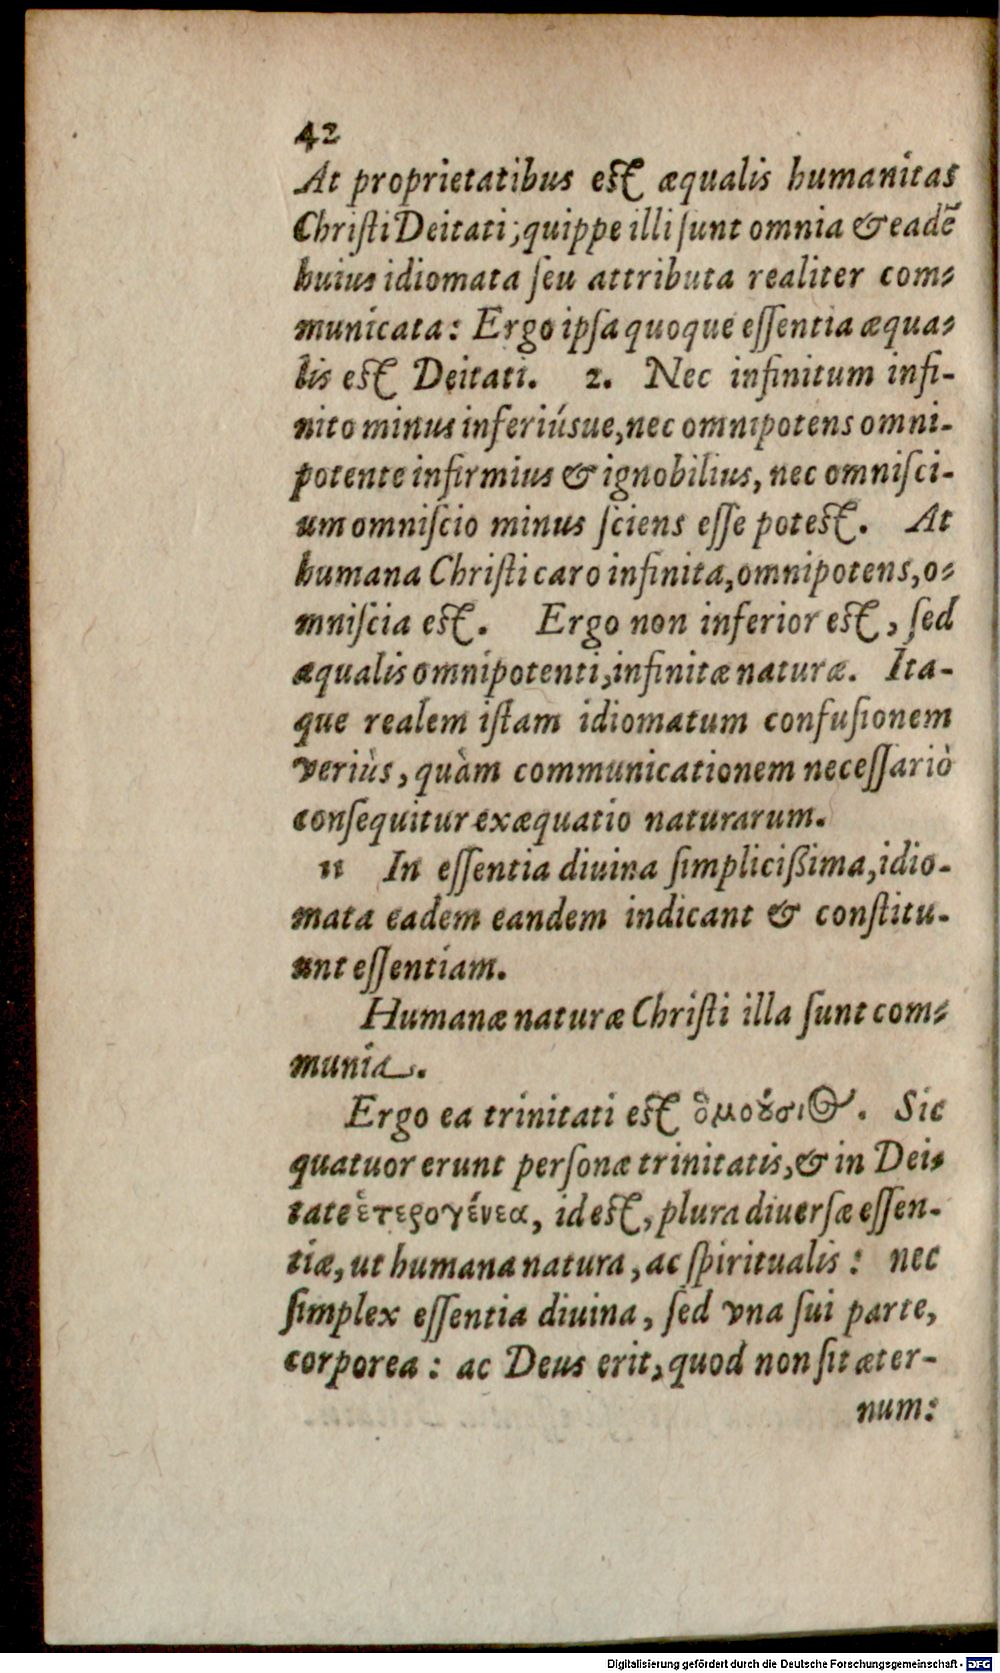 42
At proprietatibus est æqualis humanitas
Christi Deitati; quippe illi sunt omnia & eadē
huius idiomata seu attributa realiter com-
municata: Ergo ipsa quoque essentia æqua-
lis est Deitati. 2. Nec infinitum infi-
nito minus inferiúsue, nec omnipotens omni-
potente infirmius & ignobilius, nec omnisci-
um omniscio minus sciens esse potest. At
humana Christi caro infinita, omnipotens, o-
mniscia est. Ergo non inferior est, sed
æqualis omnipotenti, infinitæ naturæ. Ita-
que realem istam idiomatum confusionem
veriùs, quàm communicationem necessariò
consequitur exæquatio naturarum.
11 In essentia diuina simplicißima, idio-
mata eadem eandem indicant & constitu-
unt essentiam.
Humanæ naturæ Christi illa sunt com-
munia.
Ergo ea trinitati est ὁμοούσιος. Sic
quatuor erunt personæ trinitatis, & in Dei-
tate ἑτερογένεα, id est, plura diuersæ essen-
tiæ, ut humana natura, ac spiritualis: nec
simplex essentia diuina, sed vna sui parte,
corporea: ac Deus erit, quod non sit æter-
num:
Digitalisierung gefördert durch die Deutsche Forschungsgemeinschaft - DFG